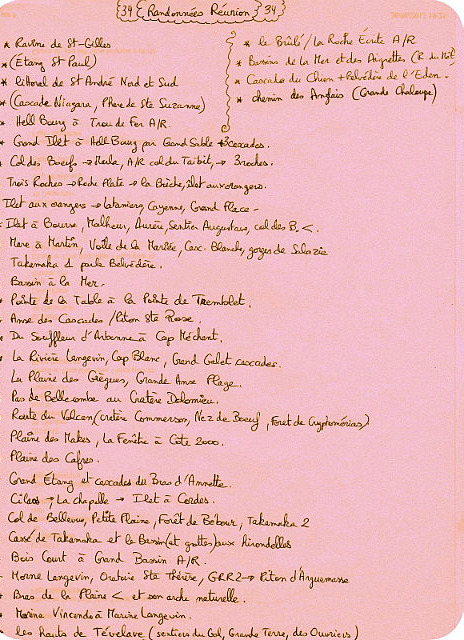 34 Randonnées Réunion 34
* Ravine de St-Gilles
* (Étang St Paul)
* littoral de St André Nord et Sud
* (Cascade Niagara, Phare de Ste Suzanne)
* Hell Bourg à Trou de Fer A/R.
* Grand Ilet à Hell Bourg par Grand Sable + 3 cascades.
* Col des Boeufs → Marla, A/R col du Taïbit, → 3 roches.
Trois Roches → Roche Plate → la Brèche, îlet aux orangers.
Ilet aux orangers → Lataniers, Cayenne, Grand Place -
- Ilet à Bourse, Malheur, Aurère, Sentier Augustave, col des B. <.
- Mare à Martin, Voile de la Mariée, Casc. Blanche, gorges de Salazie
Takamaka 1 par le Belvédère.
Bassin à la Mer.
* Pointe de la Table à la Pointe de Tremblet.
- Anse des Cascades / Piton Ste Rose.
- Du Souffleur d'Arbonne à Cap Méchant.
- La Rivière Langevin, Cap Blanc, Grand Galet cascades.
La Plaine des Grègues, Grande Anse Plage.
- Pas de Bellecombe au Cratère Dolomieu.
- Route du Volcan (cratère Commerson, Nez de Boeuf, Foret de Cryptomérias)
Plaine des Makes, La Fenêtre à Cote 2000.
Plaine des Cafres.
Grand Étang et cascades du Bras d'Annette.
Cilaos, La chapelle → Ilet à Cordes.
Col de Bellevue, Petite Plaine, Forêt de Bébour, Takamaka 2
Cassé de Takamaka et le Bassin (et grottes) aux hirondelles
- Bois Court à Grand Bassin A/R.
- Morne Langevin, Oratoire Ste Thérèse, GRR2 → Piton d'Anguemasse
* Bras de la Plaine < et son arche naturelle.
* Marine Vincendo à Marine Langevin.
les hauts de Tévelave (sentiers du Gol, Grande Terre, des Ouvriers)
* le Brûlé / La Roche Écrite A/R
* Bassins de la Mer et des Aigrettes (R. du Mât)
* Cascade du Chien + Belvédère de l'Eden.
* chemin des Anglais (Grande Chaloupe)